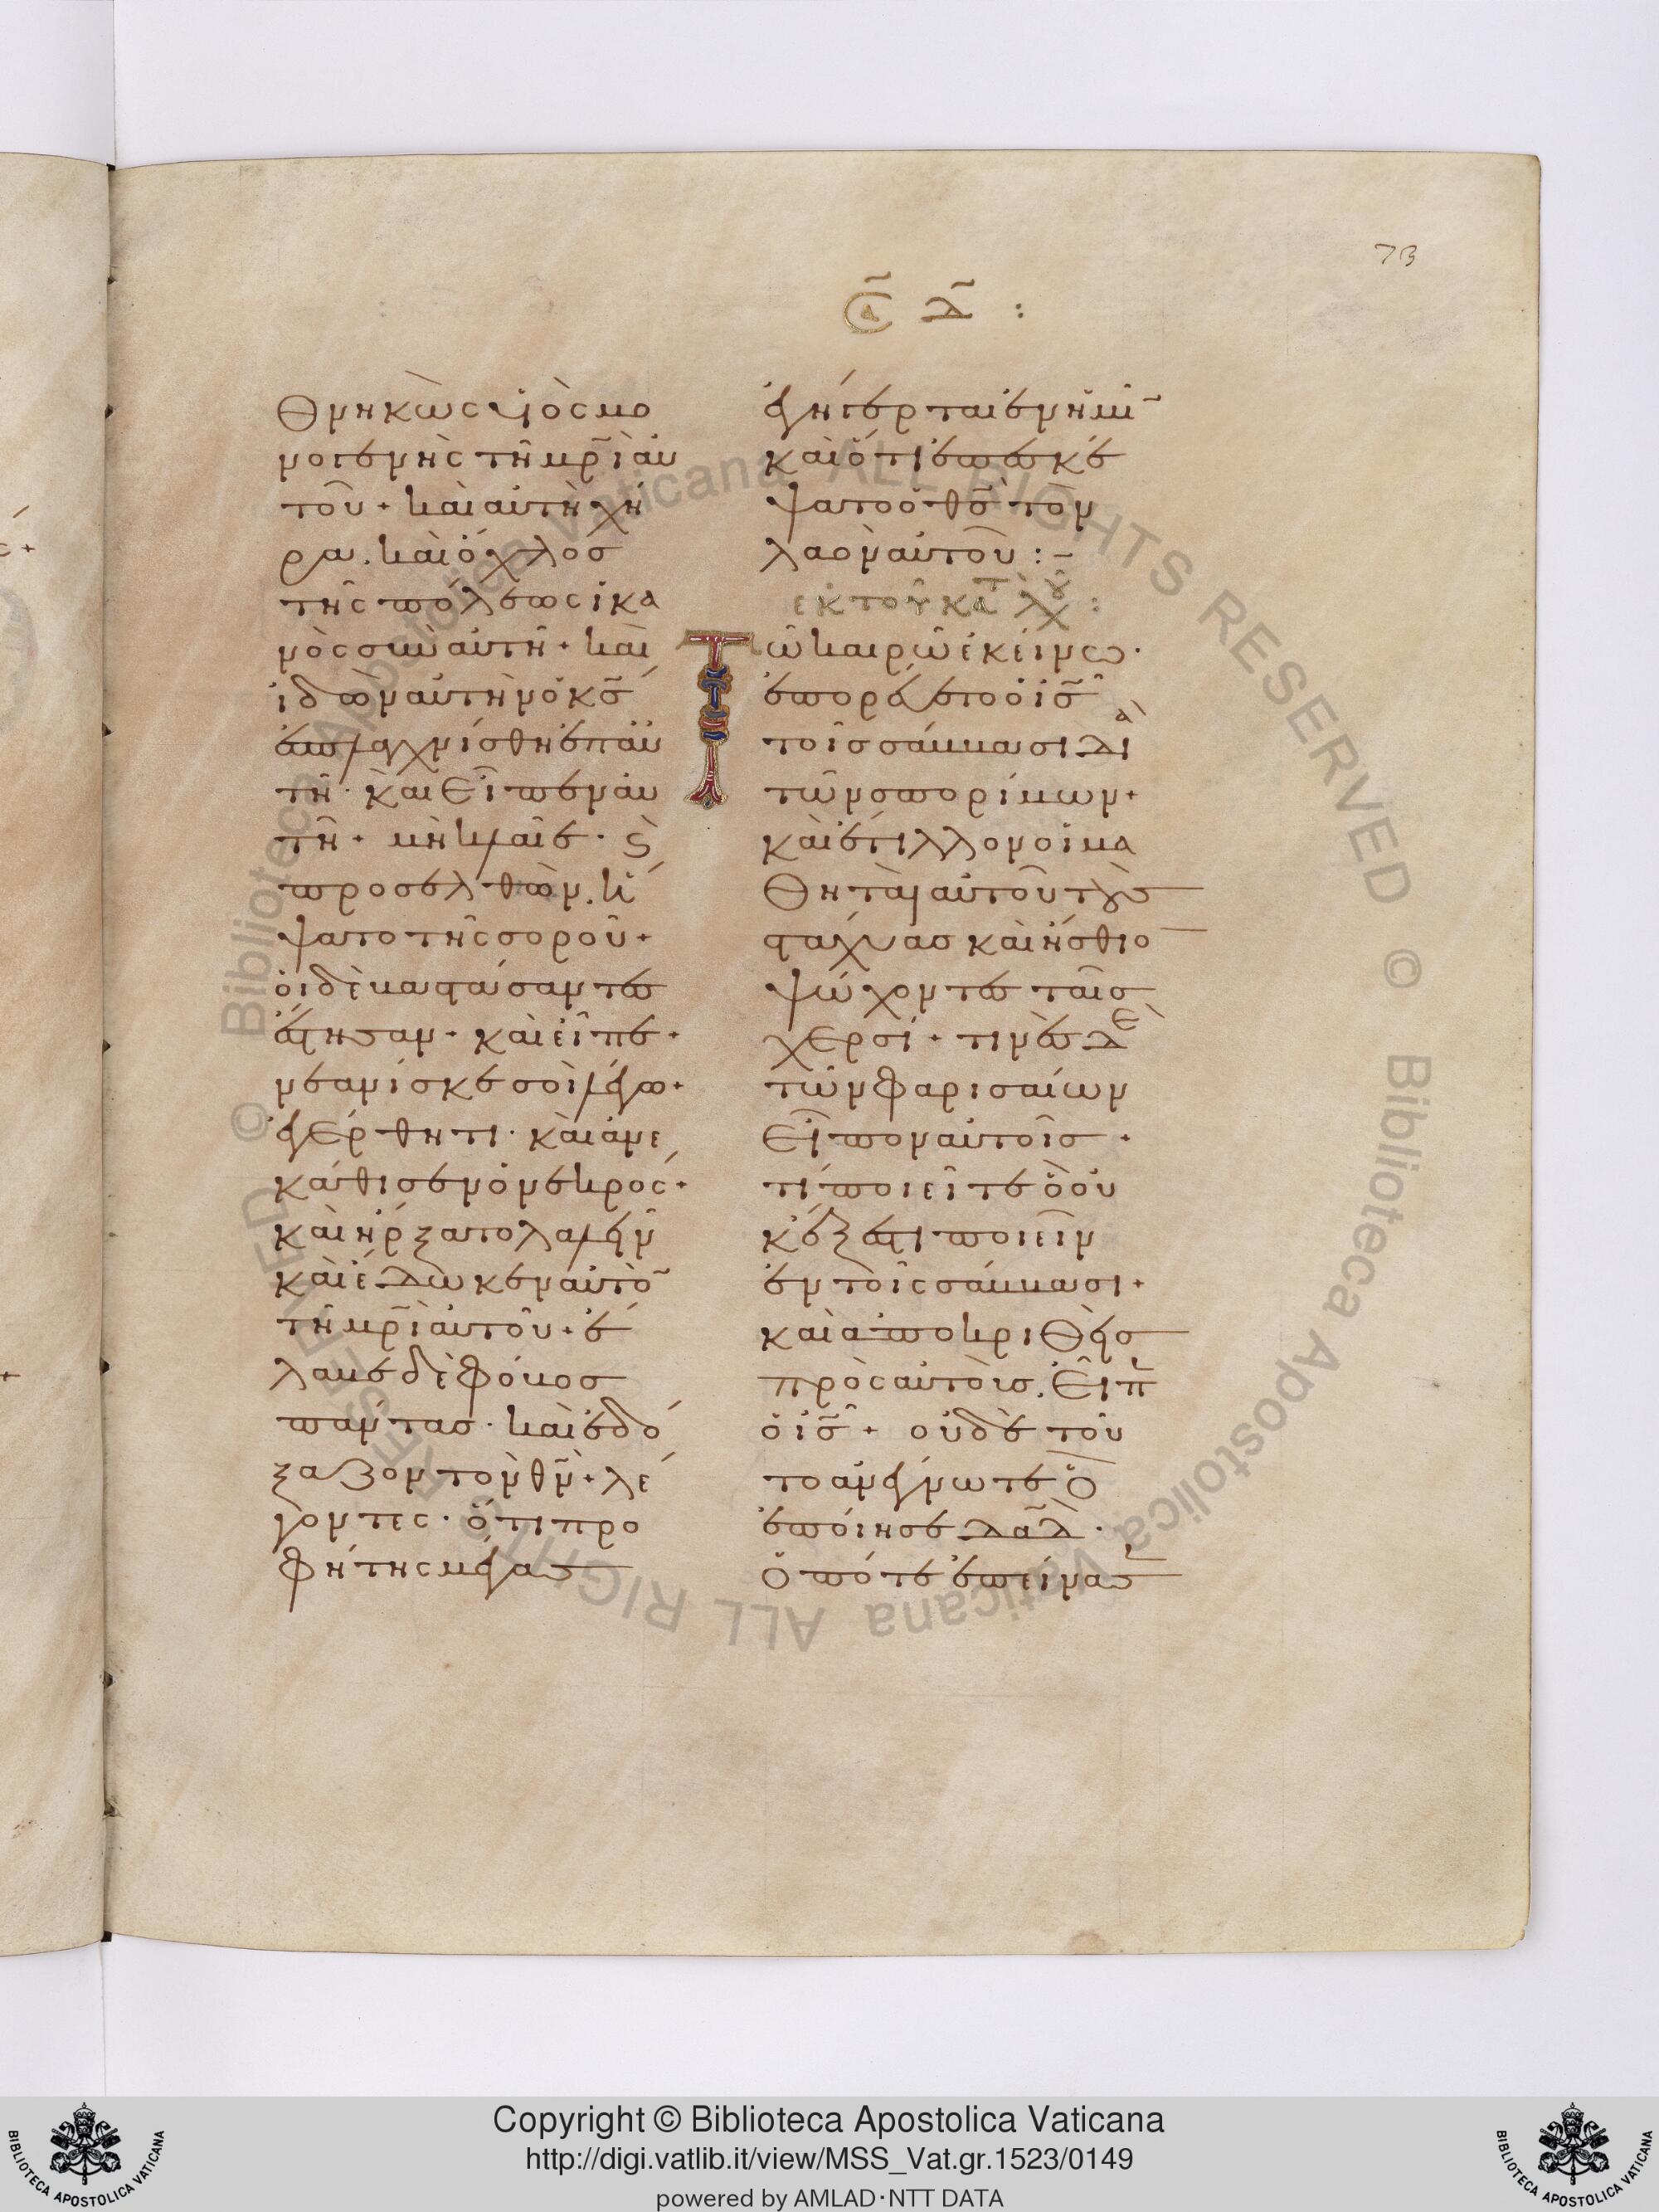 73
Σα Δ :
θνηκὼς υἱὸς μο
νογενὴς τῆ μρ̅ὶ αὐ
τοῦ + καὶ αὐτὴ χή
ρα . καὶ ὄχλοσ
τῆς πόλεως ἱκα
νὸς σὺν αὐτῆ + καὶ
ἰδὼν αὐτὴν ὁ κ̅σ
ἐσπλαγχνίσθη ἐπ αὐ
τῆ · καὶ εἶπεν αὐ
τῆ + μὴ κλαῖε · ϗ
προσελθὼν . ἥ
ψατο τῆς σοροῦ +
οἱ δὲ βαστάσαντες
ἔστησαν + καὶ εἶπε +
νεανίσκε σοὶ λέγω +
ἐγέρθητι · καὶ ἀνε
κάθισεν ὁ νεκρός +
καὶ ἤρξατο λαλεῖν
καὶ ἔδωκεν αὐτὸ̅
τῆ μρ̅ὶ αὐτοῦ + ἔ
λαβε δὲ φόβοσ
πάντασ · καὶ ἐδό
ξαζον τὸν θν̅ + λέ
γοντες · ὅτι προ
φήτης μέγασ
ἐγήγερται ἐν ἡμῖ̅
καὶ ὅτι ἐπεσκέ
ψατο ὁ θ̅σ τὸν
λαὸν αὐτοῦ : –
ἐκ τοῦ κατὰ λου :
Τῶ καιρῶ ἐκείνω ·
ἐπορεύετο ὁ ι̅σ
τοῖσ σάββασι διὰ
τῶν σπορίμων +
καὶ ἔτιλλον οἱ μα
θηταὶ αὐτοῦ τοὺσ
στάχυασ καὶ ἤσθιο̅
ψώχοντες ταῖσ
χερσί + τινὲς δὲ
τῶν φαρισαίων
εἶπον αὐτοῖσ +
τί ποιεῖτε ὃ οὐ
κ ἔξεστι ποιεῖν
ἐν τοῖς σάββασι +
καὶ ἀποκριθεὶσ
πρὸς αὐτοὺσ . εἶπ
ὁ ι̅σ + οὐδὲ τοῦ
το ἀνέγνωτε ὃ
ἐποίησε δα̅δ ·
ὁπότε ἐπείνασ
Copyright © Biblioteca Apostolica Vaticana
http://digi.vatlib.it/view/MSS_Vat.gr.1523/0149
powered by AMLAD·NTT DATA